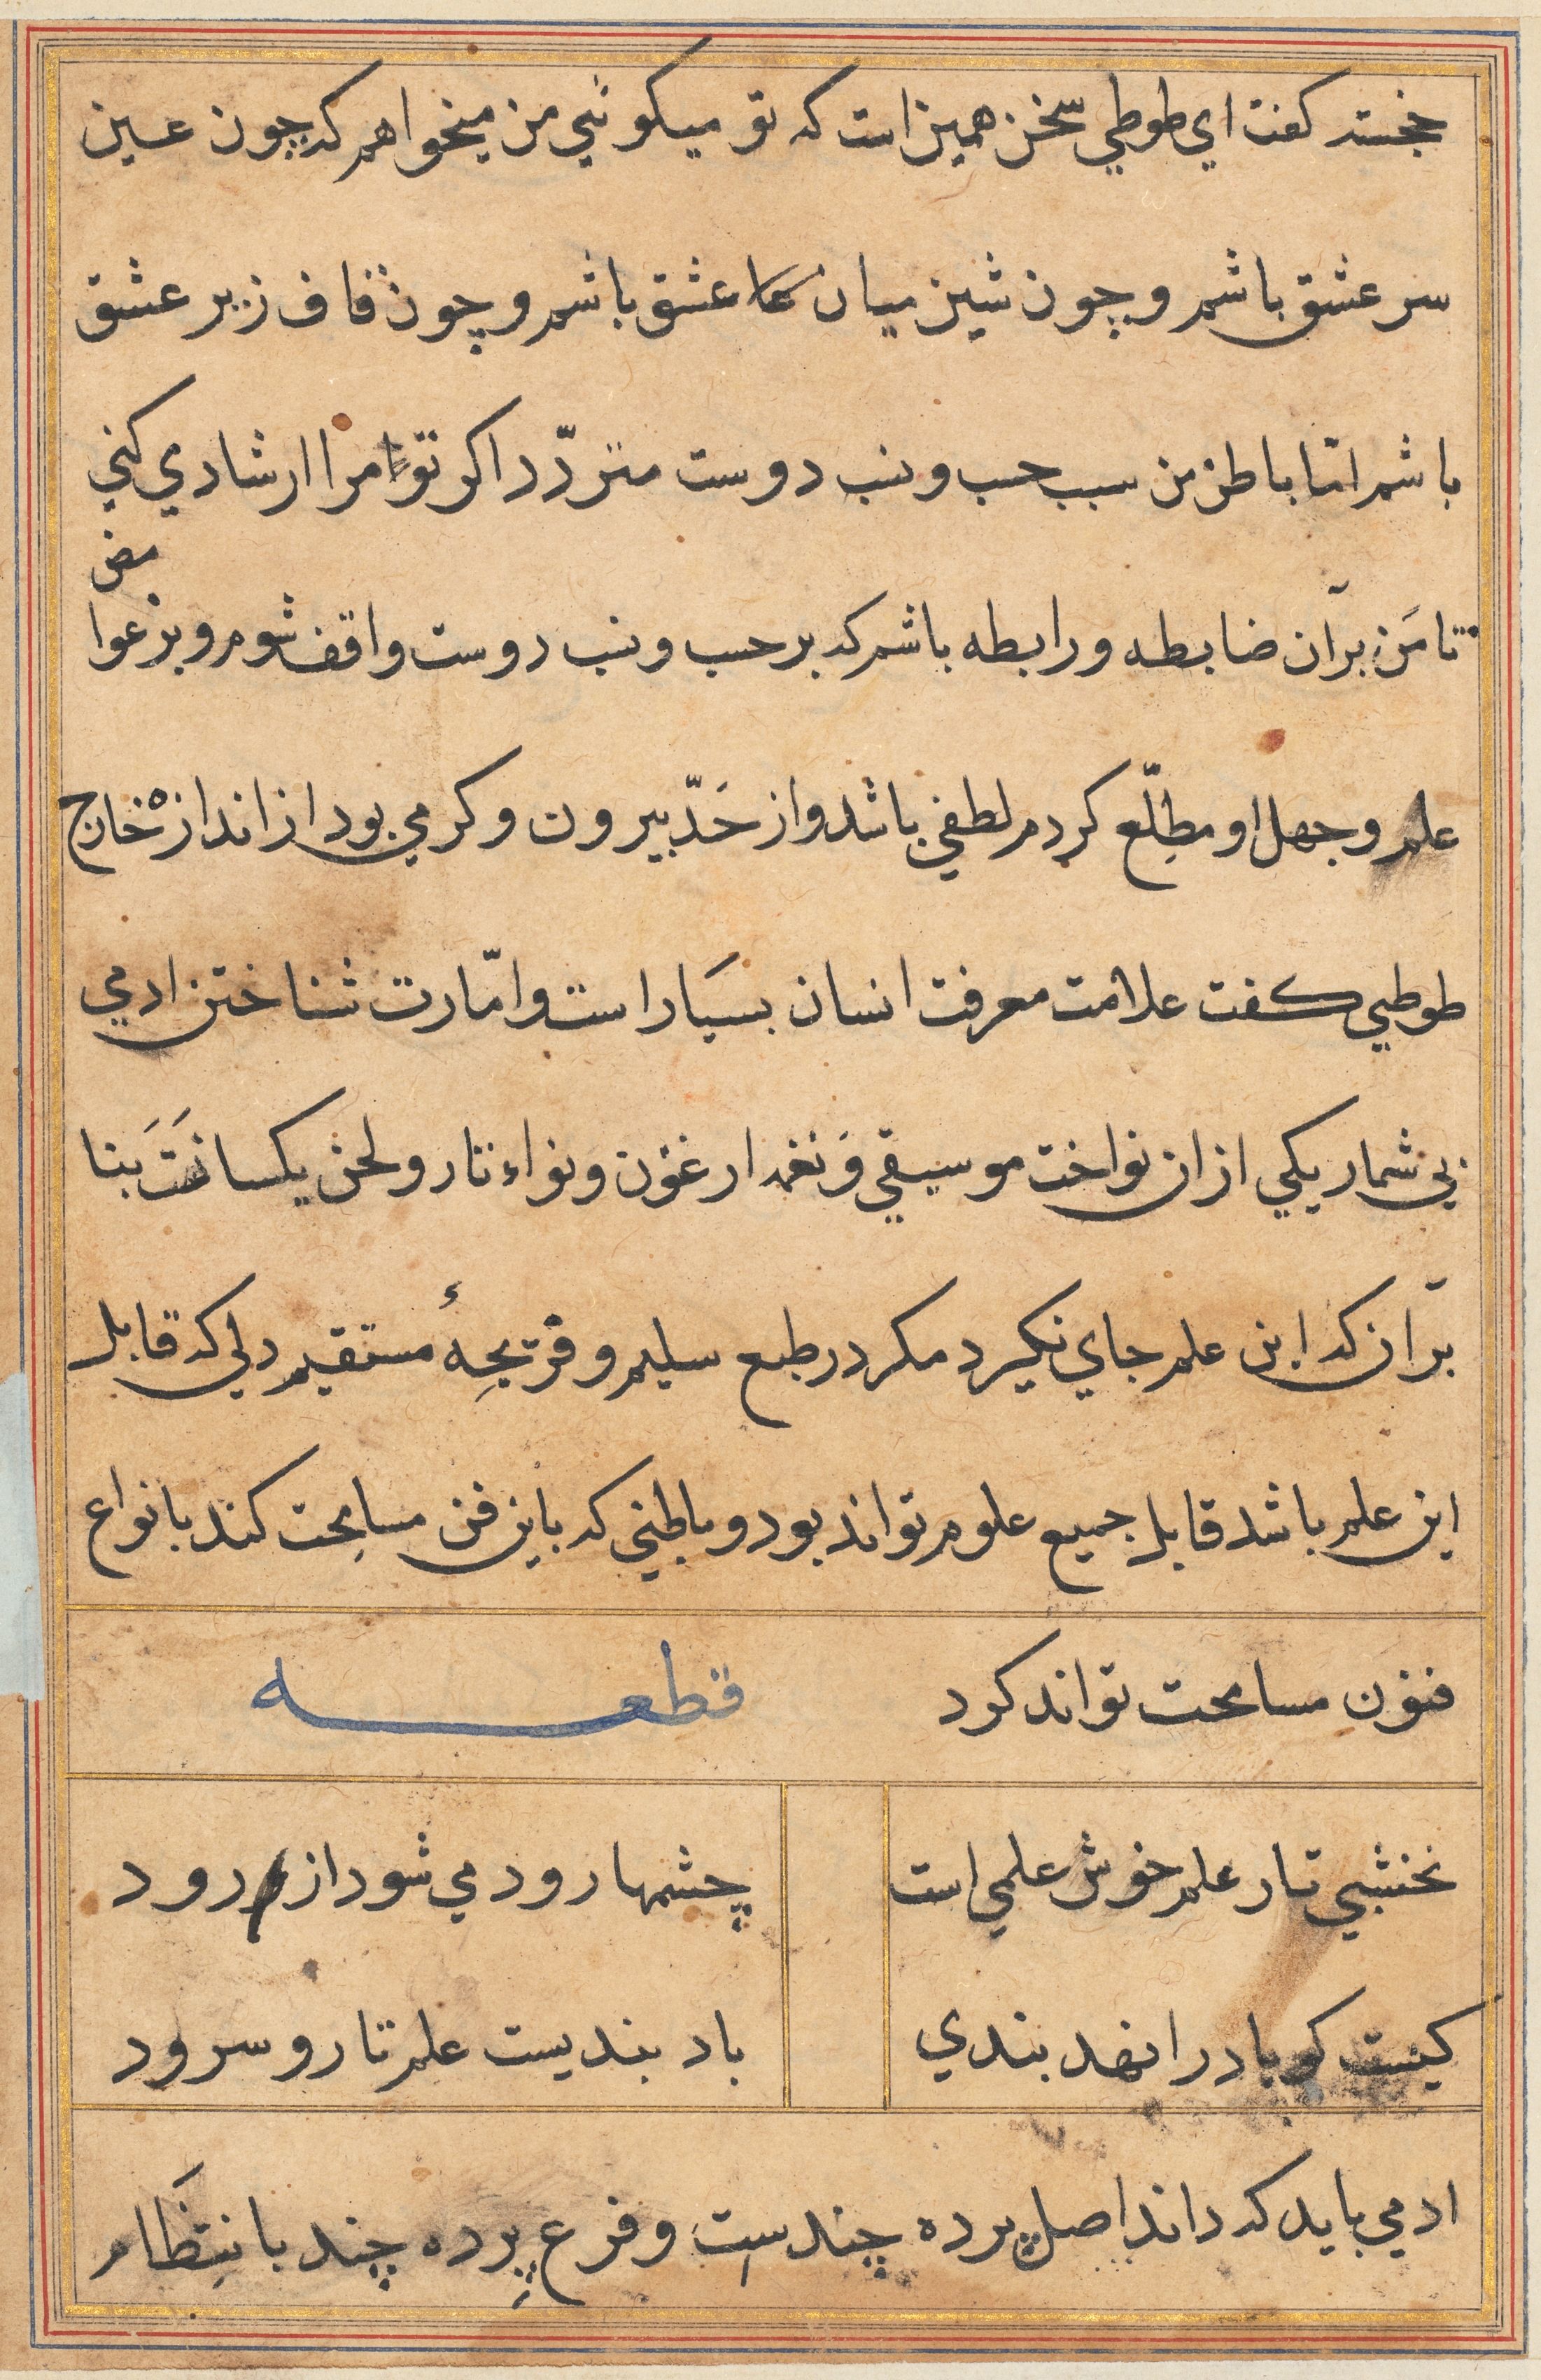 خجسته کفت اي طوطي سخن همین است که تو میکوئي من میخواهم که چون عین
سر عشق باشم و چون شین میان عشق باشم و چون قاف زیر عشق
باشم امّا باطن من سبب حسب و نسب دوست متردّد اکر تو مرا ارشادي کني
تا من بر آن ضابطه و رابطه باشم که بر حسب و نسب دوست واقف شوم و بر غوامض
علم و جهل او مطلّع کردم لطفي باشد و از حَدّ بیرون و کرمي بود از اندازه خارج
طوطي کفت علامت معرفت انسان بسیار است و امّارت شناختن ادمي
بي شمار یکي از ان نواخت موسیقي و نغمه ارغنون و نواء تار و لحن یکسانَتَ بنا
بر آن که این علم جاي نکیرد مکر در طبع سلیم و قریحهٔ مستقیم دلي که قابل
این علم باشد قابل جمیع علوم تواند بود و باطني که باین فن مسامحت کند بانواع
فنون مسامحت تواند کرد قطعه
نخشبي تار علم خوش علمي است چشمها رود مي شود از رود
کیست کو باد را نهد بندي باد بندیست علم تار و سرود
ادمي باید که داند اصل پرده چندست و فرع پرده چند با نتظام